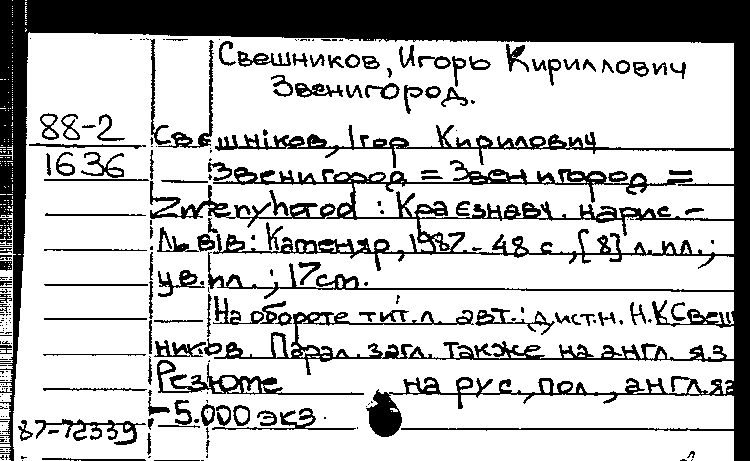 Свешников, Игорь Кириллович
Звенигород.
88-2
Свєшніков, Ігор Кирилович
1636
Звенигород = Звенигород =
Zwenyhorod : Краєзнавч. нарис. –
Львів : Каменяр, 1987. – 48 с., [8] л. ил. ;
ил. ; 17 cm.
На обороте тит. л. авт.: И.К Свеш
ников. Парал. загл. также на англ. яз
Резюме на рус., пол., англ. яз
– 5.000 экз.
87-72339